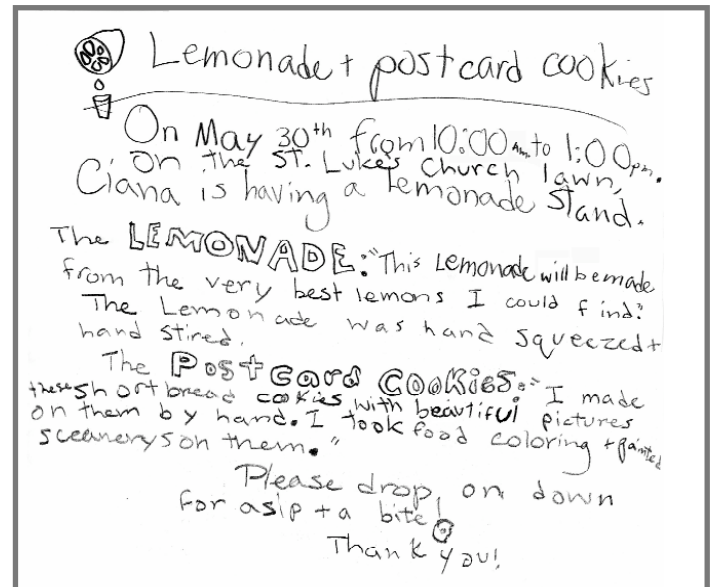 Lemonade + postcard cookies
On May 30th from 10:00 Am. to 1:00 pm.
on the ST. Lukes Church lawn,
Ciana is having a Lemonade Stand.
The LEMONADE: "This Lemonade will be made
from the very best lemons I could find."
The Lemonade was hand squeezed +
hand stired.
The Postcard COOKiES: "I made
these short bread cookies with beautiful pictures
on them by hand. I took food coloring + painted
sceanerys on them."
Please drop on down
for a sip + a bite!
Thank you!